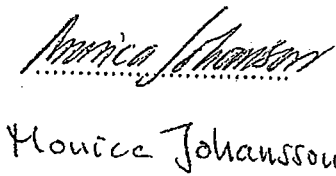 Monica Johansson
Monica Johansson